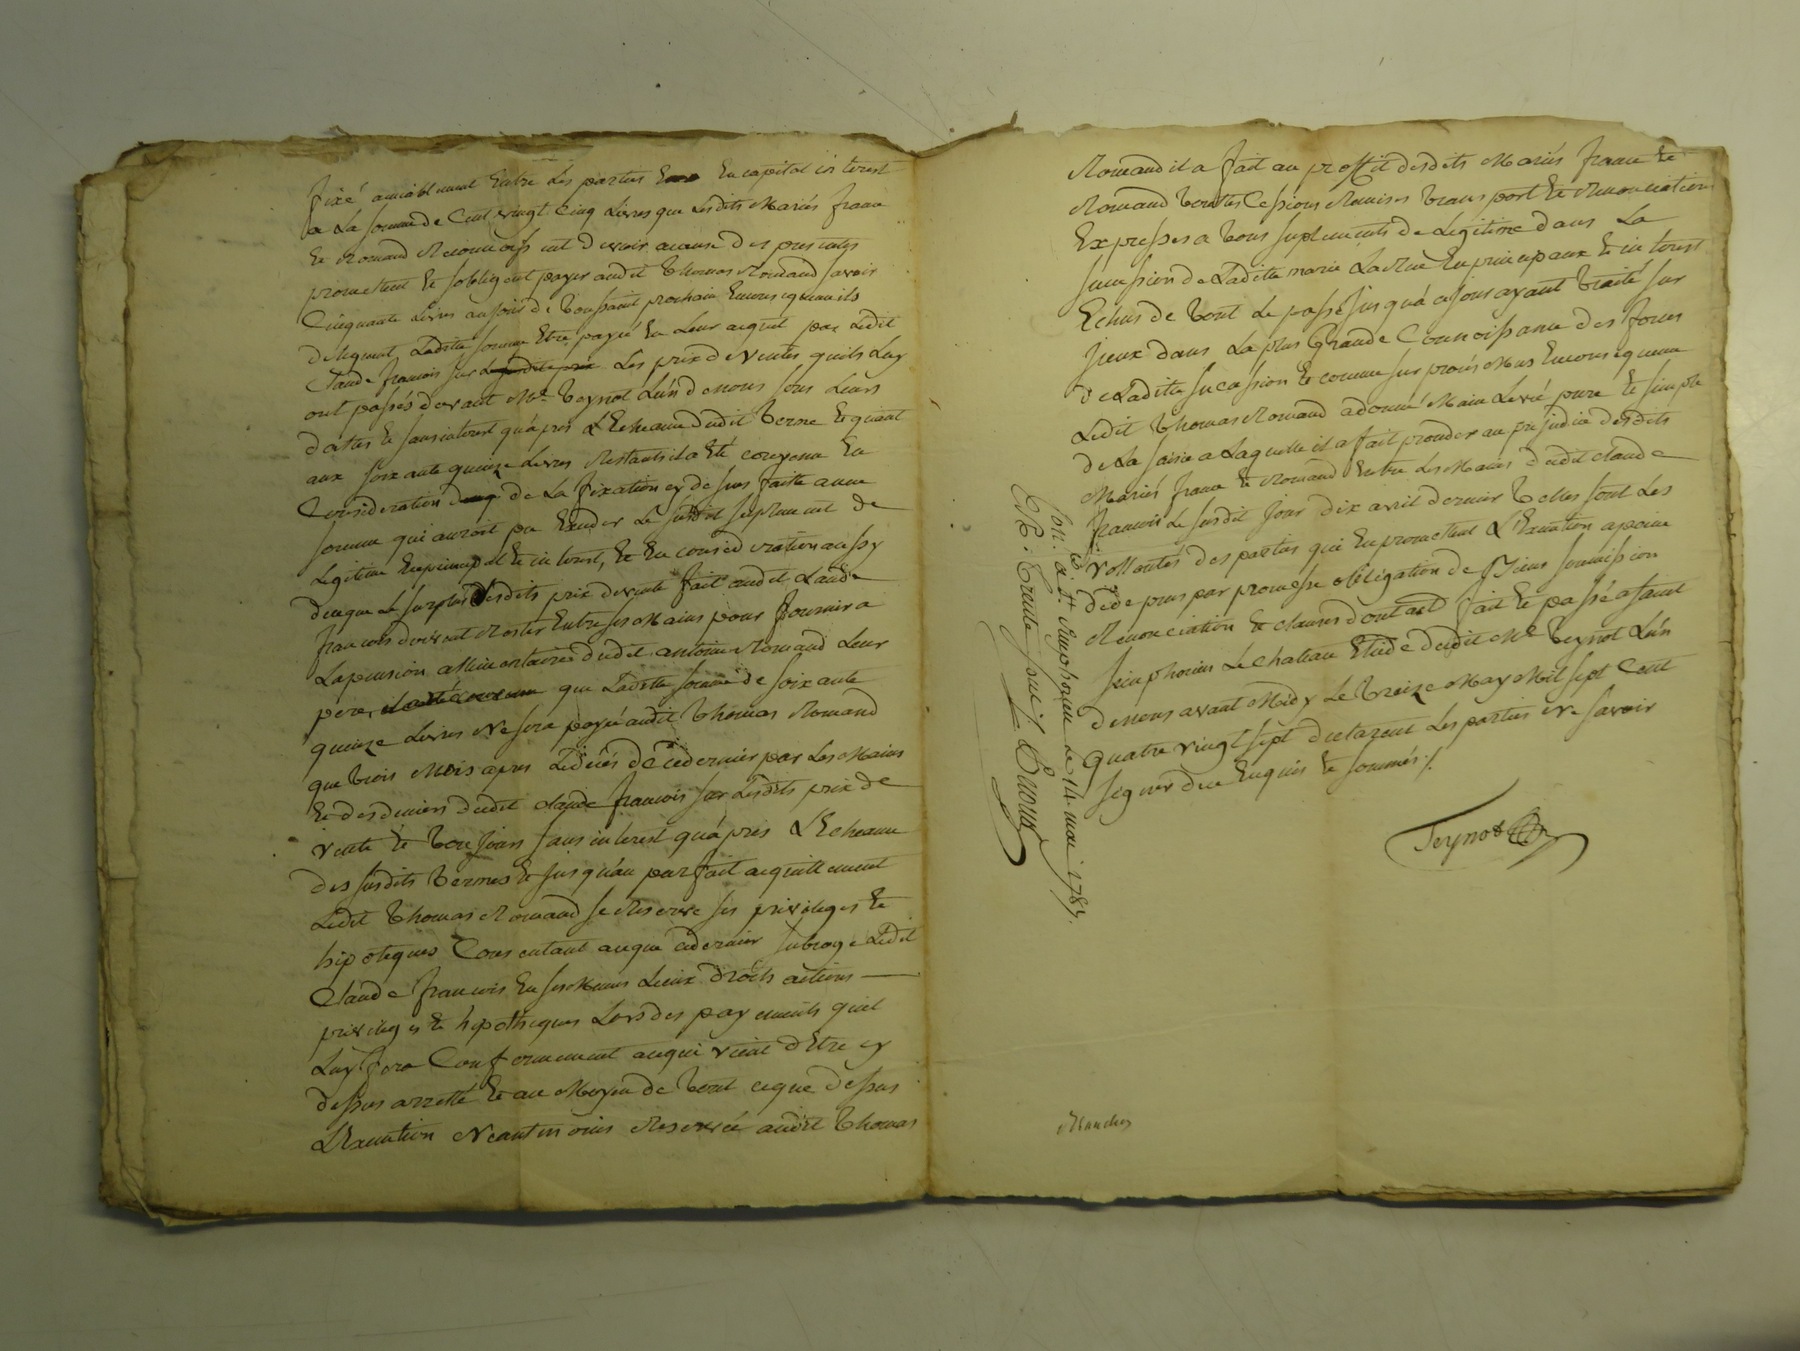 fixé amiablement Entre Les parties En capital interest
a La somme de Cent vingt Cinq Livres que Lesdits Mariés franc
Et Romand Reconnoissent devoir acause des presentes
promettent Et sobligent payer audit Thomas Romand savoir
Cinquante Livres au jour de Toussaint prochain
deleguent Ladite somme Etre payée En Leur acquit par Ledit
Claude francois sur Les prix de Ventes quils Luy
ont passés devant Me Teynot Lun de nous sous Leurs
dattes Et sans interest quapres L'Echeance dudit terme Et quant
aux soixante quinze Livres Restants il a Eté convenu En
Consideration de La fixation cy dessus faitte a une
somme qui auroit pu Exceder Le susdit suplement de
Legitime En principal Et interest, Et En consideration aussy
de ceque Le surplus desdits prix de vente fait audit Claude
francois doivent Rester Entre ses Mains pour fournir a
La pension allimentaire dudit antoine Romand Leur
pere, que Ladite somme de soixante
quinze Livres Ne sera payée audit Thomas Romand
que trois Mois apres Le decés de ce dernier par Les Mains
Et des deniers dudit Claude francois sur Lesdits prix de
vente Et toujours sans interest quapres L'Echeance
des susdits termes Et jusquau parfait acquittement
Ledit Thomas Romand se Reserve ses privileges Et
hipoteques Consentant aceque ce dernier subroge Ledit
Claude francois En ses Mesmes Lieux droits actions
privileges Et hipotheques Lors des payements quil
Luy fera Conformement acequi vient d'Etre cy
dessus arretté Et au Moyen de tout ceque dessus
L'Execution Neantmoins Reservée audit Thomas
Romand il a fait au proffit desdits Mariés franc Et
Romand toutes Cessions Remises transport Et Renonciation
Expresses a tous suplements de Legitime dans La
succession de Ladite marie La Rue En principaux Et interest
Echus de tout Le passé jusqua ce jour ayant traité sur
jceux dans La plus Grande Connoissance des forces
de Ladite succession Et comme sur procés Mus En consequence
Ledit Thomas Romand a donné Main Levée pure Et simple
de La saisie a Laquelle il a fait proceder au prejudice desdits
Mariés franc Et Romand Entre Les Mains dudit Claude
francois Le susdit jour dix avril dernier telles sont Les
vollontés des parties qui En promettent L'Execution a peine
de depens par promesse obligation de biens soumission
Renonciation Et clauses dont acte fait Et passé a saint
simphorien Le Chateau Etude dudit Me Teynot Lun
de nous avant Midy Le treize May Mil sept Cent
quatre vingt sept declarent Les parties Ne savoir
signer de ce Enquis Et sommés ./.
Teynot
Con. Et. a St. simphorien Le 14. mai 1787.
R. trente sous ./.
Blanches